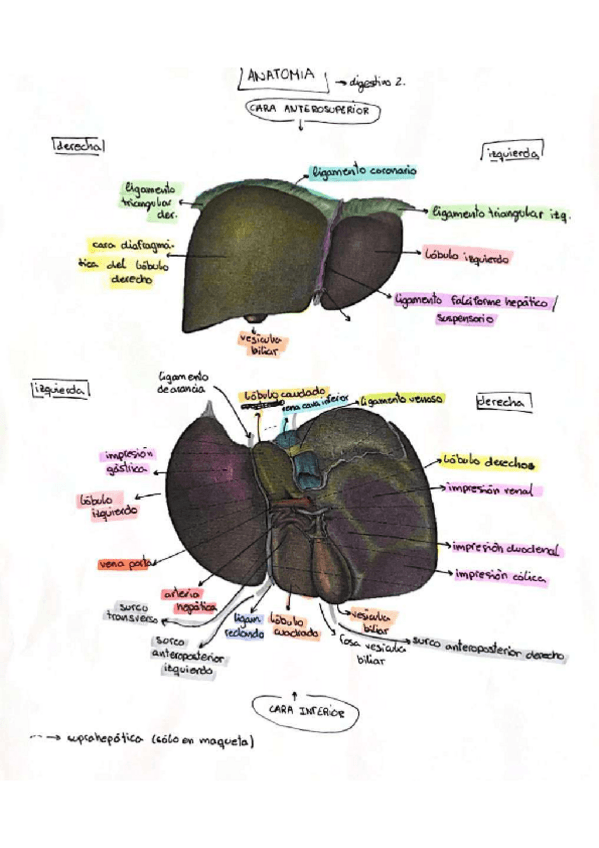 ANATOMIA → digestivo 2.
CARA ANTEROSUPERIOR
derecha
izquierda
ligamento coronario
ligamento
triangular
der.
ligamento triangular izq.
cara diafragmá-
tica del lóbulo
derecho
lóbulo izquierdo
ligamento falciforme hepático /
suspensorio
vesícula
biliar
izquierda
ligamento
de arancia
lóbulo caudado
vena cava inferior
ligamento venoso
derecha
impresión
gástrica
lóbulo derecho
impresión renal
lóbulo
izquierdo
impresión duodenal
vena porta
impresión cólica
arteria
hepática
surco
transverso
ligam.
redondo
lóbulo
cuadrado
vesícula
biliar
surco
anteroposterior
izquierdo
fosa vesícula
biliar
surco anteroposterior derecho
CARA INFERIOR
---→ suprahepática (sólo en maqueta)